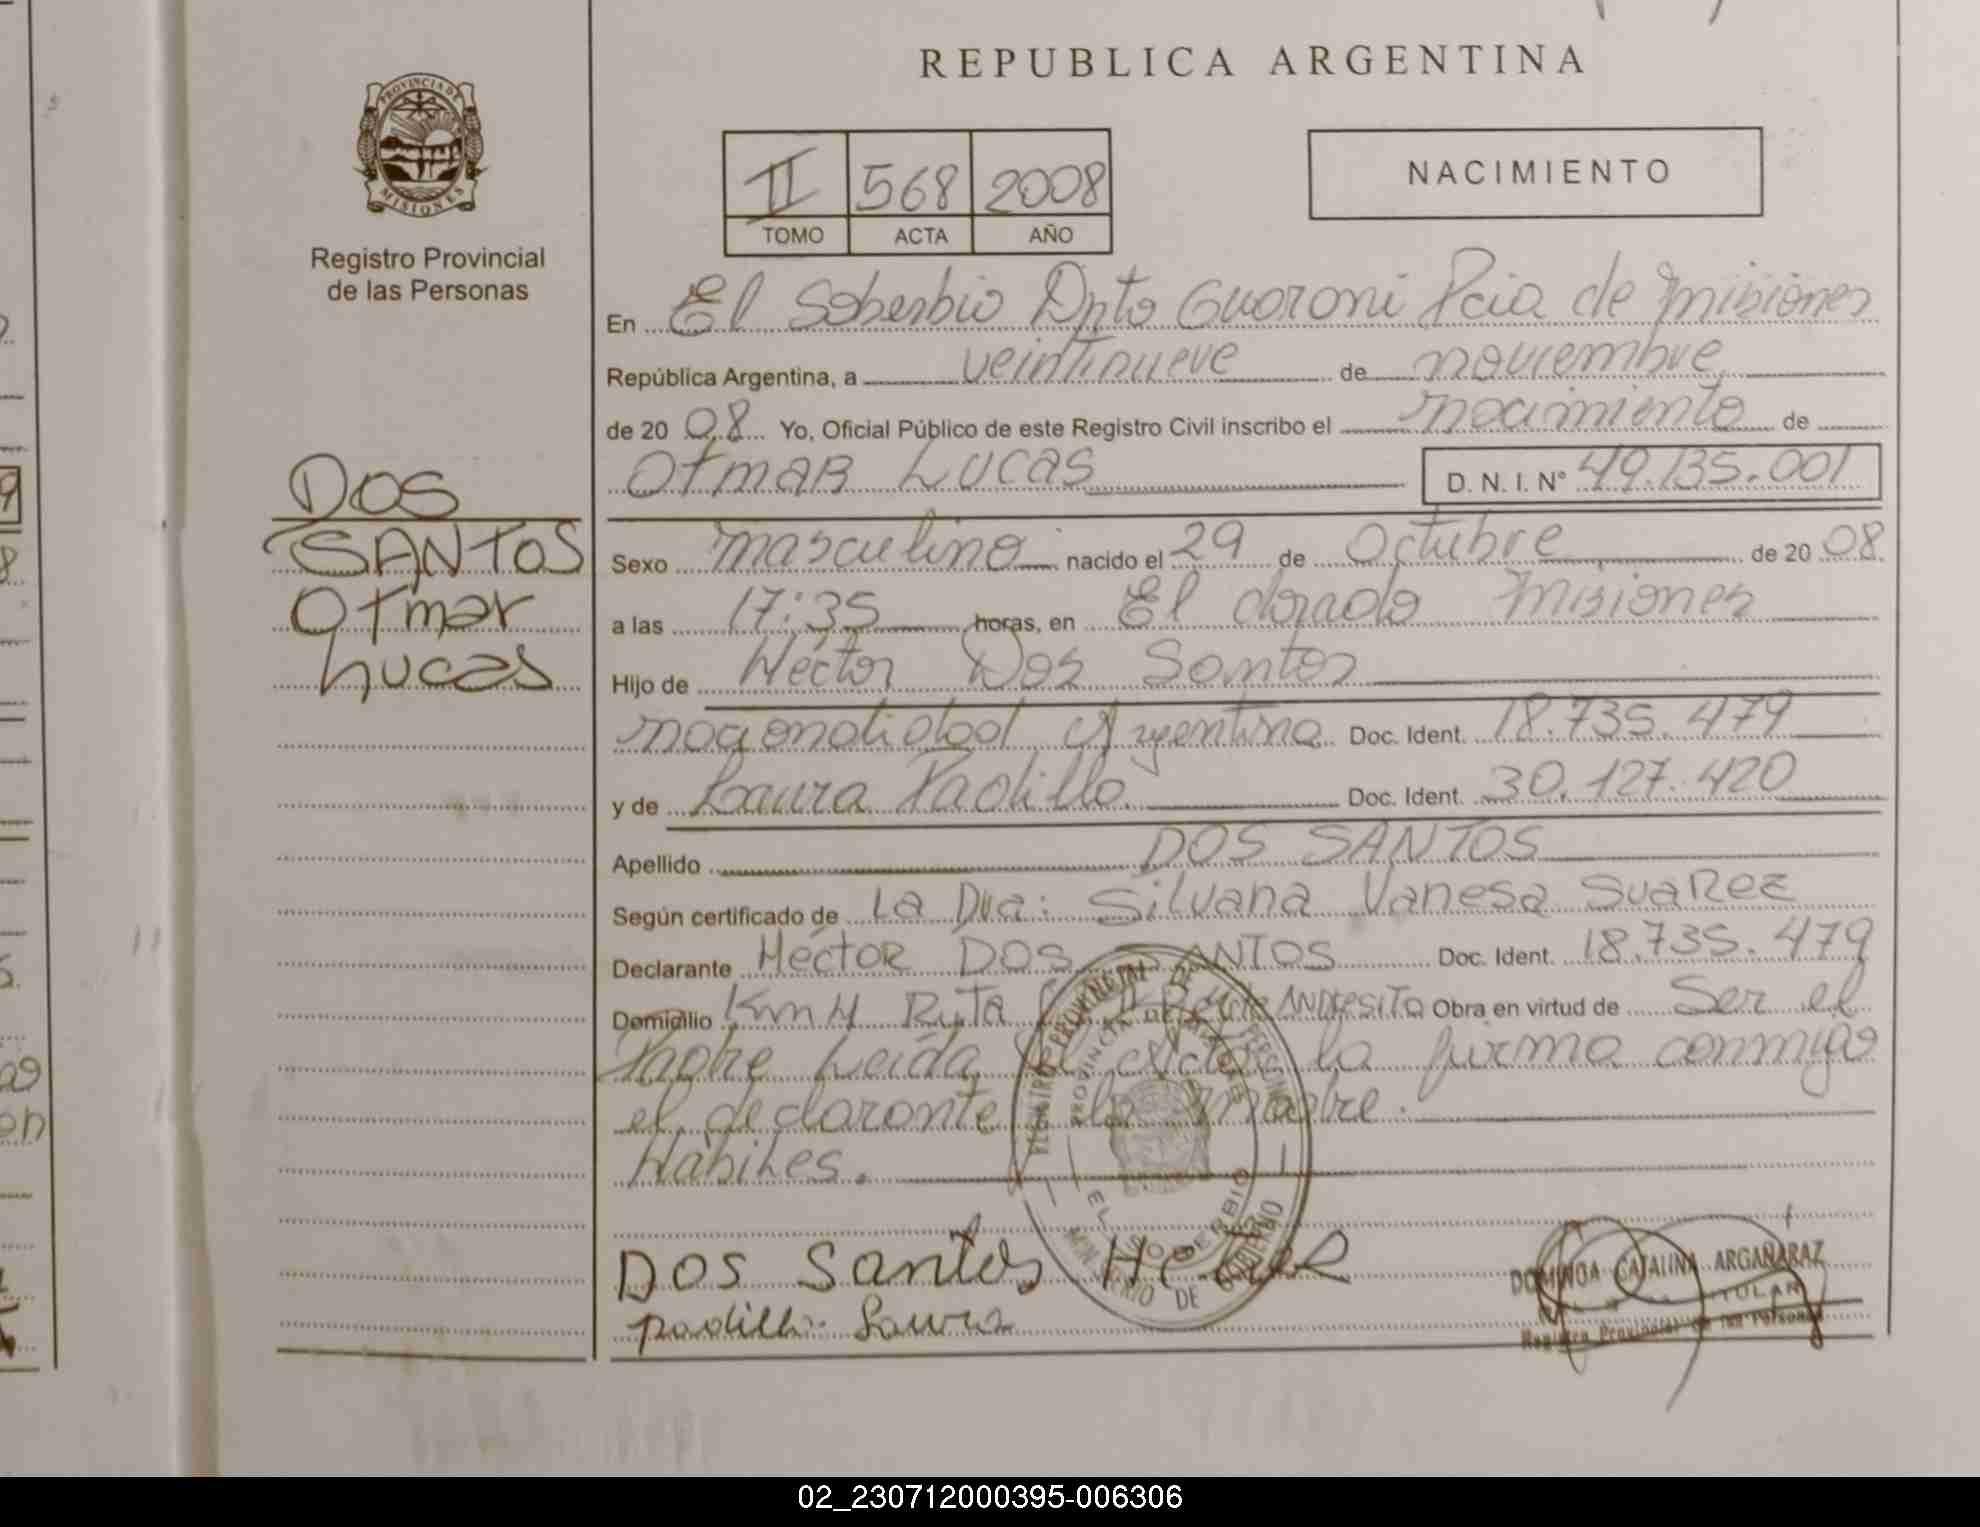 REPUBLICA ARGENTINA
PROVINCIA DE
MISIONES
Registro Provincial
de las Personas
II 568 2008
TOMO ACTA AÑO
NACIMIENTO
En El Soberbio Dpto Guaroni Pcia de Misiones
República Argentina, a veintinueve de noviembre
de 20 08 Yo, Oficial Público de este Registro Civil inscribo el nacimiento de
Otmar Lucas D. N. I. N° 49.135.001
DOS
SANTOS
Otmar
Lucas
Sexo masculino nacido el 29 de Octubre de 20 08
a las 17:35 horas, en El dorado Misiones
Hijo de Héctor Dos Santos
nacionalidad Argentina Doc. Ident. 18.735.479
y de Laura Padilla Doc. Ident. 30.127.420
Apellido DOS SANTOS
Según certificado de La Dra: Silvana Vanesa Suarez
Declarante Héctor DOS SANTOS Doc. Ident. 18.735.479
Domicilio Km 4 Ruta ANDRESITO Obra en virtud de Ser el
Padre Leída el acta la firma conmigo
el declarante la madre.
Habiles.
EL SOBERBIO
MINISTERIO DE GOBIERNO
Dos Santos Hector
Padilla Laura
DOMINGA CATALINA ARGAÑARAZ
TITULAR
Registro Provincial de las Personas
02_230712000395-006306